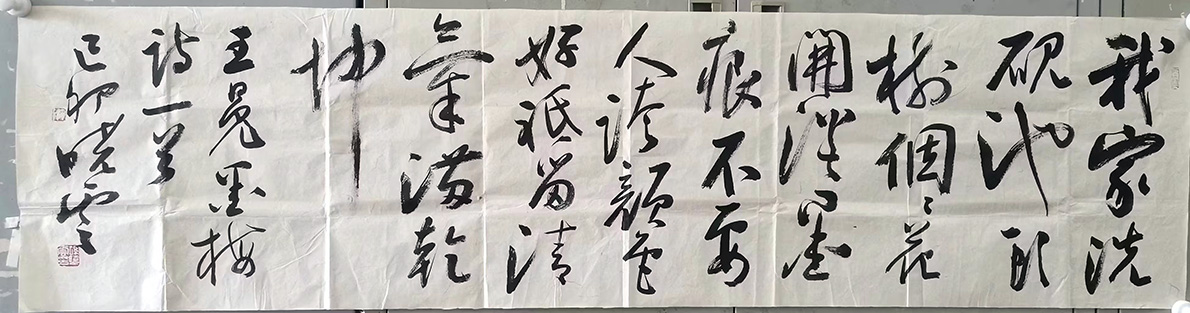 我家洗
硯池頭
樹個個花
開淡墨
痕不要
人誇顏色
好祗留清
氣滿乾
坤
王冕墨梅
詩一首
己卯曉雲